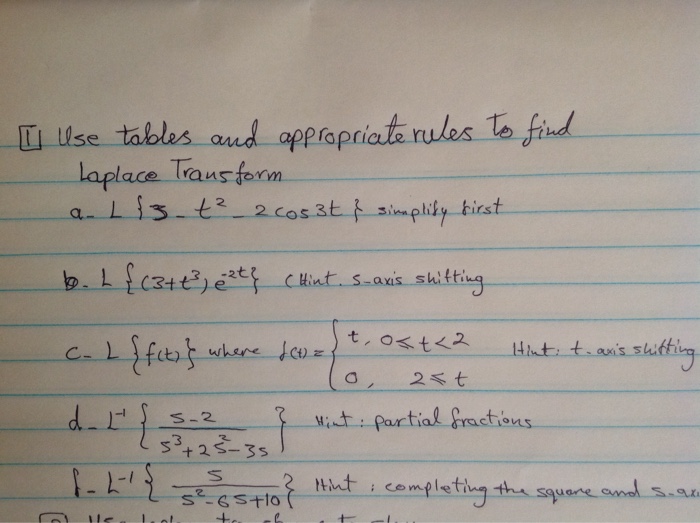 1 Use tables and appropriate rules to find
Laplace Transform
a- L {3 - t² - 2 cos 3t } simplify first
b. L {(3+t³) e^-2t} (Hint. s-axis shifting
c- L {f(t)} where f(t) = { t, 0≤t<2 Hint: t-axis shifting
0, 2≤t
d- L⁻¹ { (s-2)/(s³+2s²-3s) } Hint: partial fractions
f- L⁻¹ { s/(s²-6s+10) } Hint: completing the square and s-ax